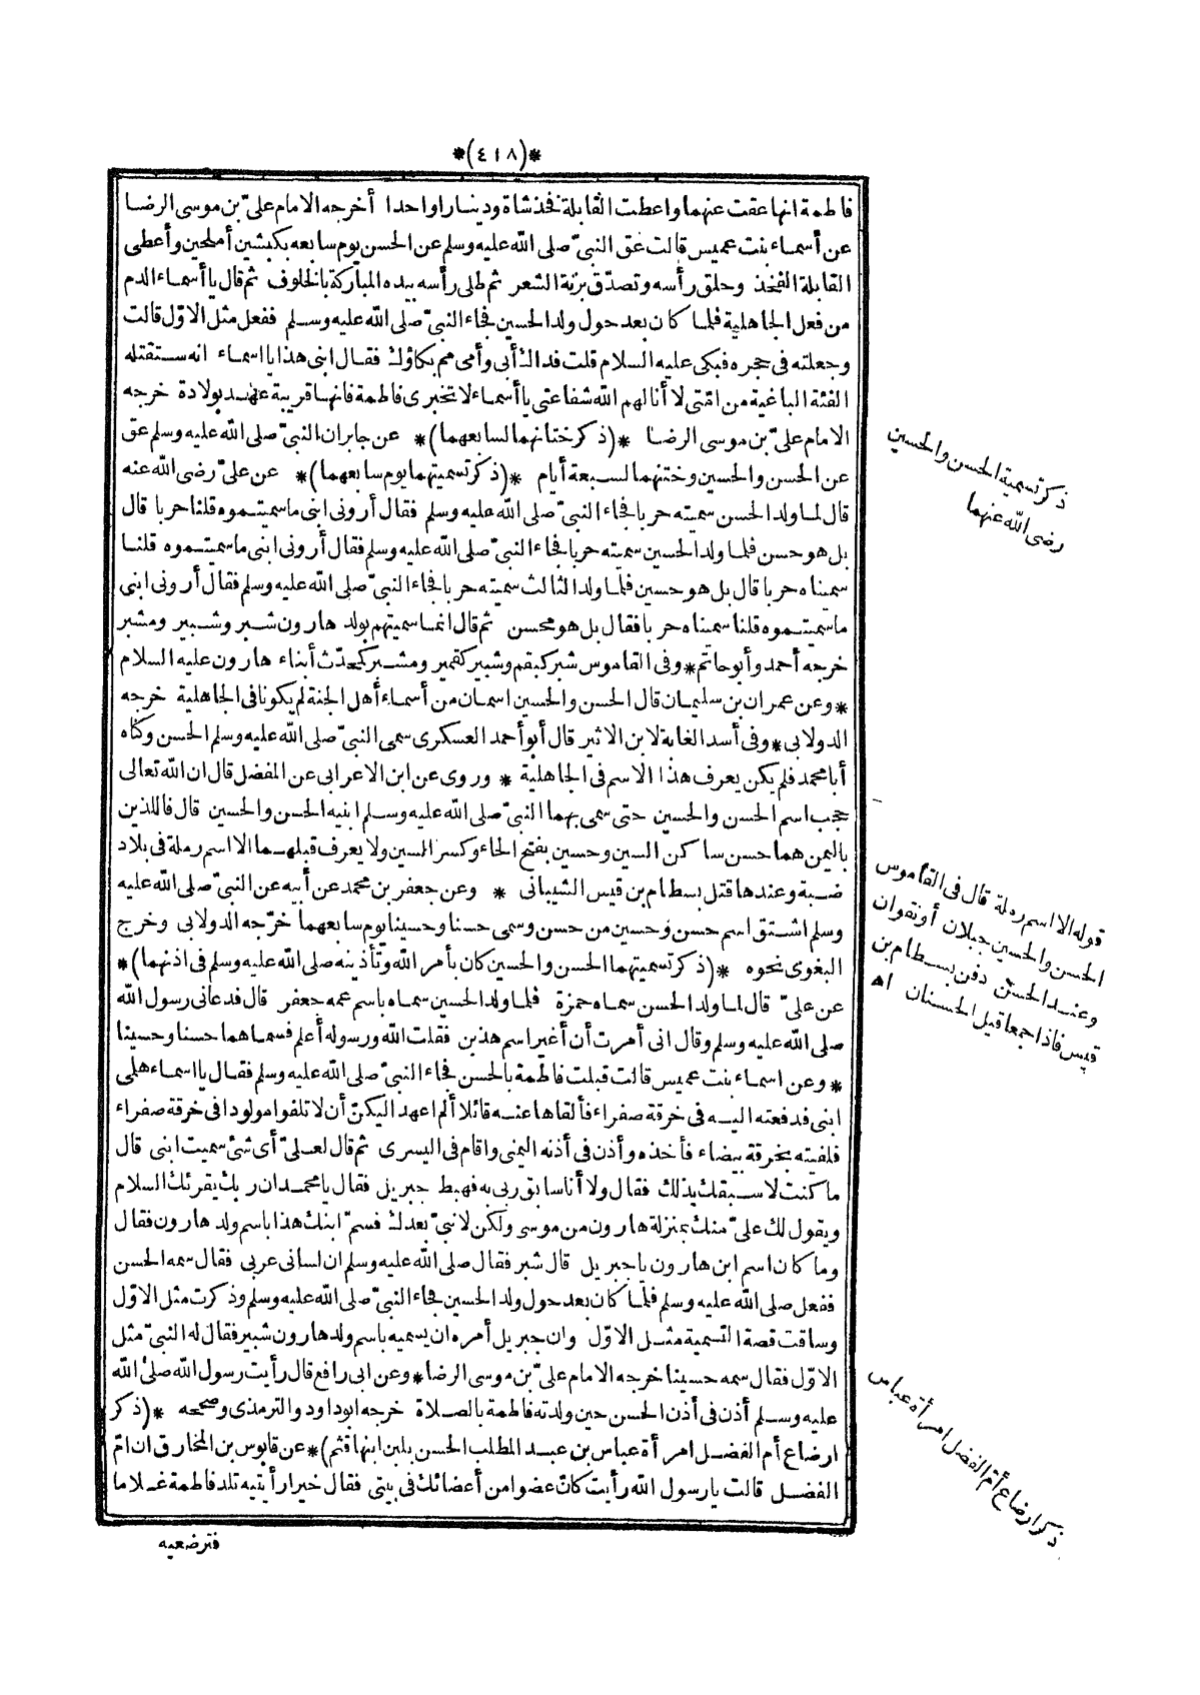 *(٤١٨)*
فاطمة انها عقت عنهما واعطت القابلة فخذ شاة ودينارا واحدا أخرجه الامام علىّ بن موسى الرضا
عن أسماء بنت عميس قالت عق النبىّ صلى الله عليه وسلم عن الحسن يوم سابعه بكبشين أملحين وأعطى
القابلة الفخذ وحلق رأسه وتصدّق بزنة الشعر ثم طلى رأسه بيده المباركة بالخلوف ثم قال يا أسماء الدم
من فعل الجاهلية فلما كان بعد حول ولد الحسين فجاء النبىّ صلى الله عليه وسلم ففعل مثل الاوّل قالت
وجعلته فى حجره فبكى عليه السلام قلت فداك أبى وأمى مم بكاؤك فقال ابنى هذا يا اسماء انه ستقتله
الفئة الباغية من امّتى لا أنالهم الله شفاعتى يا أسماء لا تخبرى فاطمة فانها قريبة عهد بولادة خرجه
الامام علىّ بن موسى الرضا *(ذكر ختانهما لسابعهما)* عن جابر ان النبىّ صلى الله عليه وسلم عق
عن الحسن والحسين وختنهما لسبعة أيام *(ذكر تسميتهما يوم سابعهما)* عن علىّ رضى الله عنه
قال لما ولد الحسن سميته حربا فجاء النبىّ صلى الله عليه وسلم فقال أرونى ابنى ما سميتموه قلنا حربا قال
بل هو حسن فلما ولد الحسين سميته حربا فجاء النبىّ صلى الله عليه وسلم فقال أرونى ابنى ما سميتموه قلنا
سميناه حربا قال بل هو حسين فلما ولد الثالث سميته حربا فجاء النبىّ صلى الله عليه وسلم فقال أرونى ابنى
ما سميتموه قلنا سميناه حربا فقال بل هو محسن ثم قال انما سميتهم بولد هارون شبر وشبير ومشبر
خرجه أحمد وأبو حاتم * وفى القاموس شبر كبقم وشبير كقمير ومشبر كمحدّث أبناء هارون عليه السلام
* وعن عمران بن سليمان قال الحسن والحسين اسمان من أسماء أهل الجنة لم يكونا فى الجاهلية خرجه
الدولابى * وفى أسد الغابة لابن الاثير قال أبو أحمد العسكرى سمى النبىّ صلى الله عليه وسلم الحسن وكناه
أبا محمد فلم يكن يعرف هذا الاسم فى الجاهلية * وروى عن ابن الاعرابى عن المفضل قال ان الله تعالى
حجب اسم الحسن والحسين حتى سمى بهما النبىّ صلى الله عليه وسلم ابنيه الحسن والحسين قال فاللذين
باليمن هما حسن ساكن السين وحسين بفتح الحاء وكسر السين ولا يعرف قبلهما الا اسم رملة فى بلاد
ضبة وعندها قتل بسطام بن قيس الشيبانى * وعن جعفر بن محمد عن أبيه عن النبىّ صلى الله عليه
وسلم اشتق اسم حسن وحسين من حسن وسمى حسنا وحسينا يوم سابعهما خرّجه الدولابى وخرج
البغوى نحوه *(ذكر تسميتهما الحسن والحسين كان بأمر الله وتأذينه صلى الله عليه وسلم فى اذنهما)*
عن علىّ قال لما ولد الحسن سماه حمزة فلما ولد الحسين سماه باسم عمه جعفر قال فدعانى رسول الله
صلى الله عليه وسلم وقال انى أمرت أن أغير اسم هذين فقلت الله ورسوله أعلم فسماهما حسنا وحسينا
* وعن اسماء بنت عميس قالت قبلت فاطمة بالحسن فجاء النبىّ صلى الله عليه وسلم فقال يا اسماء هلمى
ابنى فدفعته اليه فى خرقة صفراء فألقاها عنه قائلا ألم اعهد اليكنّ أن لا تلفوا مولودا فى خرقة صفراء
فلفيته بخرقة بيضاء فأخذه وأذن فى أذنه اليمنى واقام فى اليسرى ثم قال لعلىّ أى شئ سميت ابنى قال
ما كنت لاسبقك بذلك فقال ولا أنا سابق ربى به فهبط جبريل فقال يا محمد ان ربك يقرئك السلام
ويقول لك علىّ منك بمنزلة هارون من موسى ولكن لا نبىّ بعدك فسمّ ابنك هذا باسم ولد هارون فقال
وما كان اسم ابن هارون يا جبريل قال شبر فقال صلى الله عليه وسلم ان لسانى عربى فقال سمه الحسن
ففعل صلى الله عليه وسلم فلما كان بعد حول ولد الحسين فجاء النبىّ صلى الله عليه وسلم وذكرت مثل الاوّل
وساقت قصة التسمية مثل الاوّل وان جبريل أمره ان يسميه باسم ولد هارون شبير فقال له النبىّ مثل
الاوّل فقال سمه حسينا خرجه الامام علىّ بن موسى الرضا * وعن ابى رافع قال رأيت رسول الله صلى الله
عليه وسلم أذن فى أذن الحسن حين ولدته فاطمة بالصلاة خرجه ابو داود والترمذى وصححه *(ذكر
ارضاع أم الفضل امرأة عباس بن عبد المطلب الحسن بلبن ابنها قثم)* عن قابوس بن المخارق ان امّ
الفضل قالت يا رسول الله رأيت كانّ عضوا من أعضائك فى بيتى فقال خيرا رأيتيه تلد فاطمة غلاما
فترضعيه
ذكر تسمية الحسن والحسين
رضى الله عنهما
قوله الا اسم رملة قال فى القاموس
الحسن والحسين جبلان أو نقوان
وعند الحسن دفن بسطام بن
قيس فاذا جمعا قيل الحسنان اه
ذكر ارضاع أمّ الفضل امرأة عباس